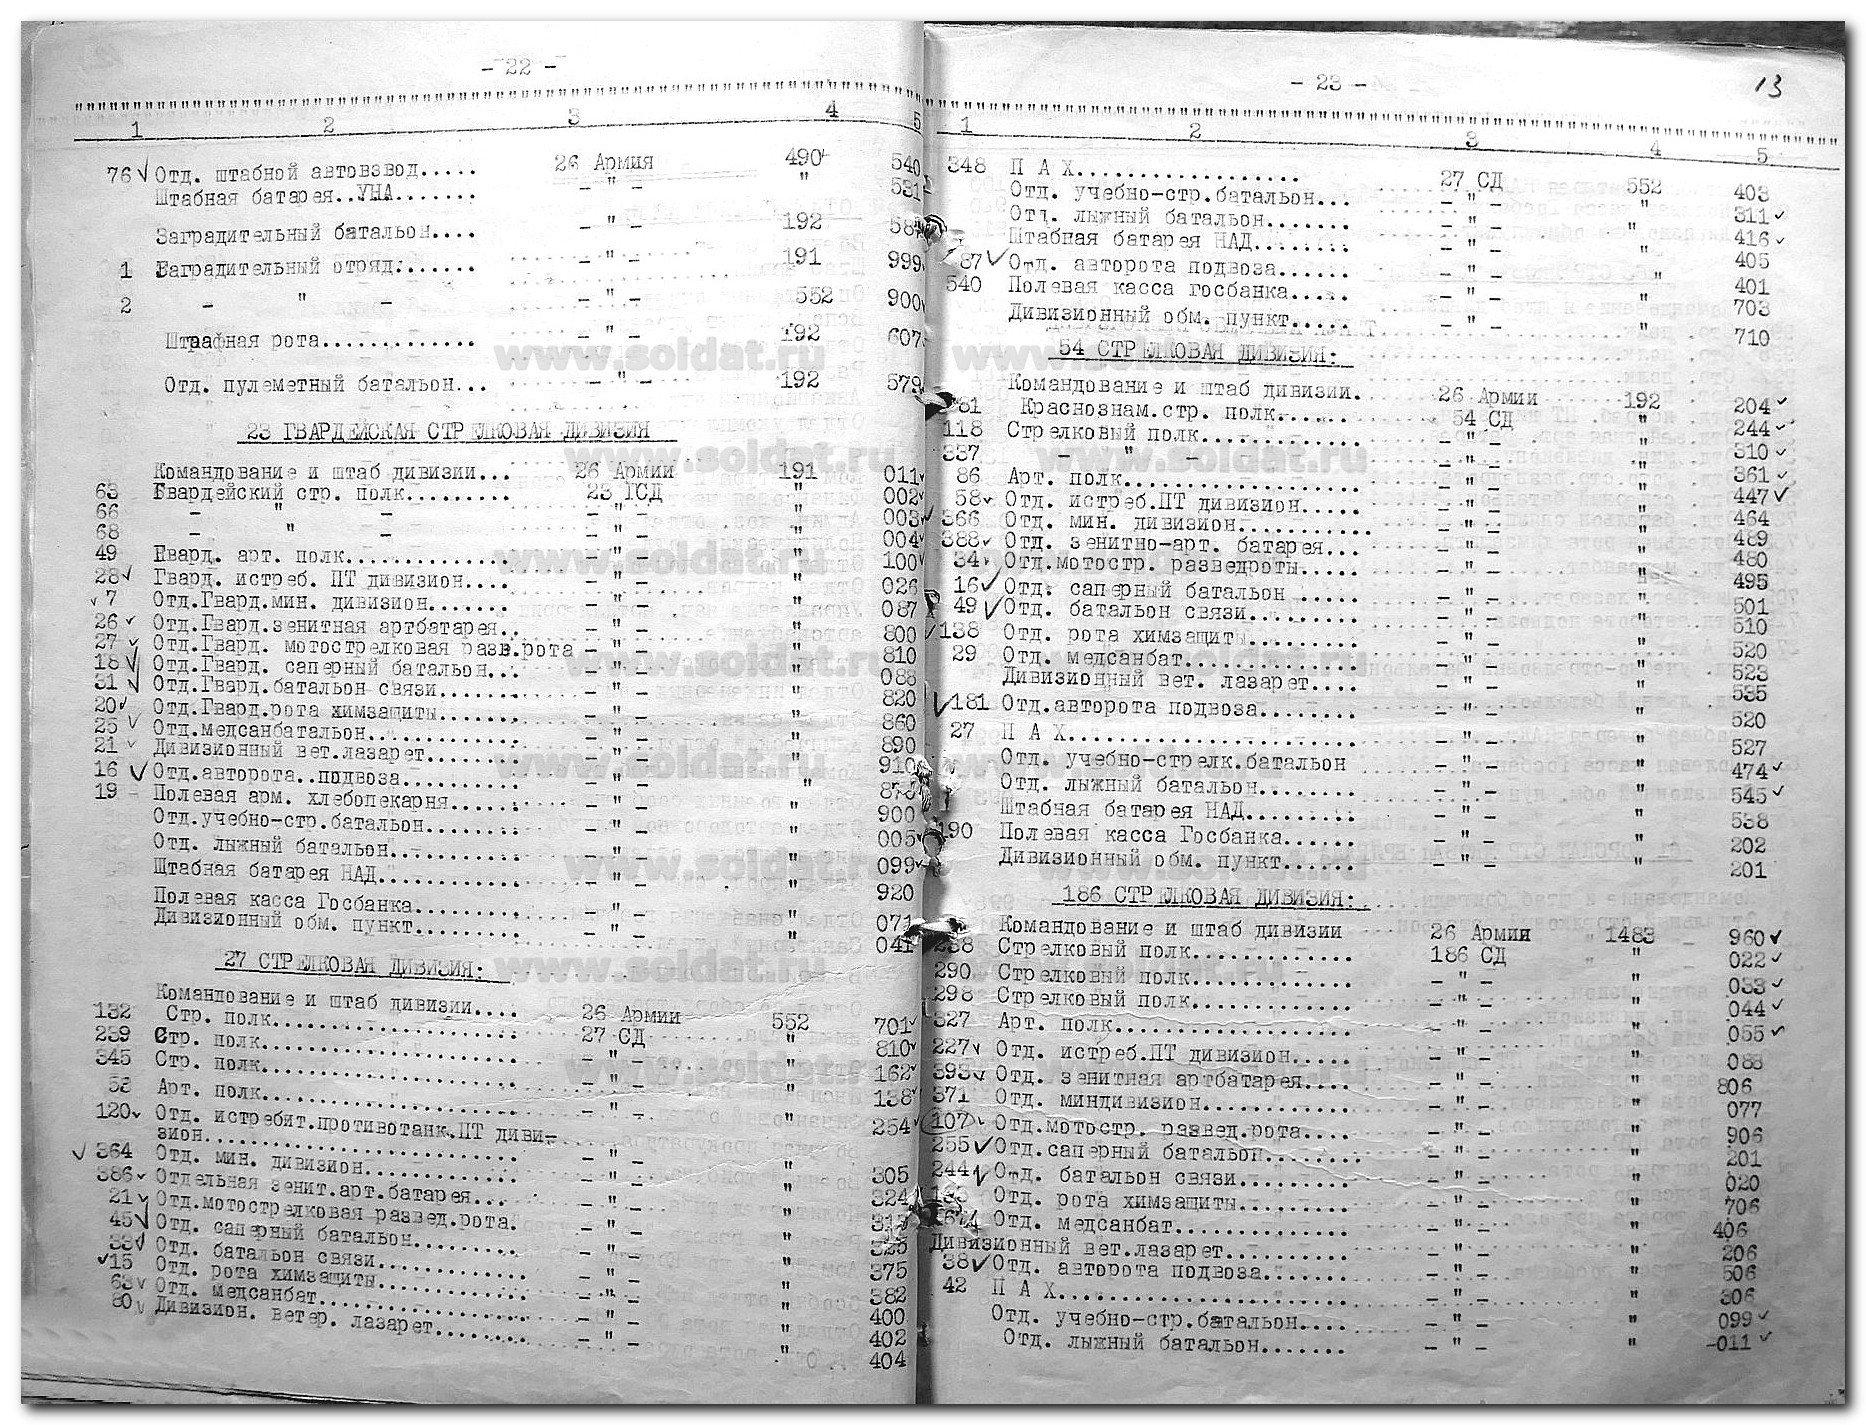 - 22 -
1 2 3 4 5
76 Отд. штабной автовзвод..... 26 Армия 490 540
Штабная батарея..УНА....... - " - " 531
Заградительный батальон.... - " - 192
1 Заградительный отряд:...... - " - 191 999
2 - " - - " - 552 900
Штрафная рота............. - " - 192 607
Отд. пулеметный батальон... - " - 192 579
23 ГВАРДЕЙСКАЯ СТРЕЛКОВАЯ ДИВИЗИЯ
Командование и штаб дивизии... 26 Армии 191 011
63 Гвардейский стр. полк......... 23 ГСД " 002
66 - " - - " - " 003
68 - " - - " - " 004
49 Гвард. арт. полк............. - " - " 100
28 Гвард. истреб. ПТ дивизион.... - " - " 026
7 Отд.Гвард.мин. дивизион....... - " - " 087
26 Отд.Гвард.зенитная артбатарея.. - " - " 800
27 Отд.Гвард. мотострелковая разв.рота - " - " 810
18 Отд.Гвард. саперный батальон... - " - " 088
31 Отд.Гвард.батальон связи....... - " - " 820
20 Отд.Гвард.рота химзащиты....... - " - " 860
25 Отд.медсанбатальон............. - " - " 890
21 Дивизионный вет.лазарет........ - " - " 910
16 Отд.авторота..подвоза.......... - " - "
19 Полевая арм. хлебопекарня...... - " - " 900
Отд.учебно-стр.батальон........ - " - " 005
Отд. лыжный батальон........... - " - " 099
Штабная батарея НАД............ - " - " 920
Полевая касса Госбанка......... - " - " 071
Дивизионный обм. пункт......... - " - " 041
27 СТРЕЛКОВАЯ ДИВИЗИЯ:
Командование и штаб дивизии.... 26 Армии 552 701
132 Стр. полк..................... 27 СД " 810
239 Стр. полк..................... - " - " 162
345 Стр. полк..................... - " - " 138
53 Арт. полк..................... - " - " 254
120 Отд. истребит.противотанк.ПТ диви-
зион........................ - " - " 305
364 Отд. мин. дивизион............ - " - " 324
386 Отдельная зенит.арт.батарея... - " - "
21 Отд.мотострелковая развед.рота. - " - " 325
45 Отд. саперный батальон........ - " - " 375
33 Отд. батальон связи........... - " - " 382
15 Отд. рота химзащиты........... - " - " 400
63 Отд. медсанбат................ - " - " 402
80 Дивизион. ветер. лазарет...... - " - " 404
- 23 - 13
1 2 3 4 5
348 П А Х.................. 27 СД 552 403
Отд. учебно-стр.батальон... - " - " 311
Отд. лыжный батальон....... - " - " 416
Штабная батарея НАД........ - " - " 405
87 Отд. авторота подвоза...... - " - " 401
540 Полевая касса госбанка..... - " - " 703
Дивизионный обм. пункт..... - " - " 710
54 СТРЕЛКОВАЯ ДИВИЗИЯ:
Командование и штаб дивизии. 26 Армии 192 204
81 Краснознам.стр. полк...... 54 СД " 244
118 Стрелковый полк........... - " - " 310
337 - " - - " - " 361
86 Арт. полк................. - " - " 447
58 Отд. истреб.ПТ дивизион..... - " - " 464
366 Отд. мин. дивизион.......... - " - " 469
388 Отд. зенитно-арт. батарея... - " - " 480
34 Отд.мотостр. разведроты..... - " - " 495
16 Отд. саперный батальон ..... - " - " 501
49 Отд. батальон связи......... - " - " 510
138 Отд. рота химзащиты......... - " - " 520
29 Отд. медсанбат.............. - " - " 523
Дивизионный вет. лазарет.... - " - " 535
181 Отд.авторота подвоза........ - " - " 520
27 П А Х....................... - " - " 527
Отд. учебно-стрелк.батальон - " - " 474
Отд. лыжный батальон........ - " - " 545
Штабная батарея НАД......... - " - " 538
190 Полевая касса Госбанка...... - " - " 202
Дивизионный обм. пункт...... - " - " 201
186 СТРЕЛКОВАЯ ДИВИЗИЯ:
Командование и штаб дивизии 26 Армии 1483 960
238 Стрелковый полк............. 186 СД " 022
290 Стрелковый полк............. - " - " 033
298 Стрелковый полк............. - " - " 044
327 Арт. полк................... - " - " 055
227 Отд. истреб.ПТ дивизион..... - " - " 088
393 Отд. зенитная артбатарея.... - " - " 806
371 Отд. миндивизион............ - " - " 077
107 Отд.мотостр. развед.рота.... - " - " 906
255 Отд.саперный батальон....... - " - " 201
244 Отд. батальон связи......... - " - " 020
Отд. рота химзащиты......... - " - " 706
Отд. медсанбат.............. - " - " 406
Дивизионный вет.лазарет......... - " - " 206
38 Отд. авторота подвоза....... - " - " 506
42 П А Х....................... - " - " 306
Отд. учебно-стр.батальон.... - " - " 099
Отд. лыжный батальон....... - " - " -011
www.soldat.ru